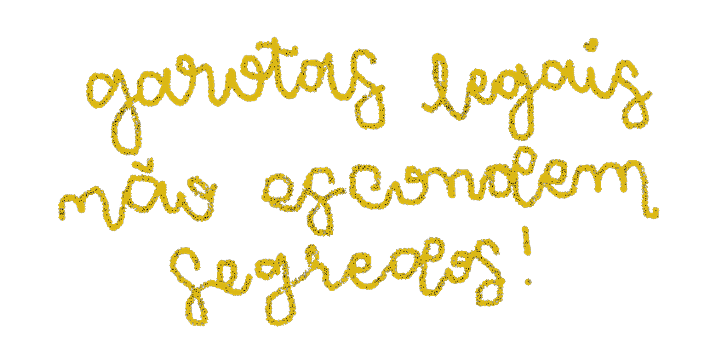 garotas legais
não escondem
segredos!